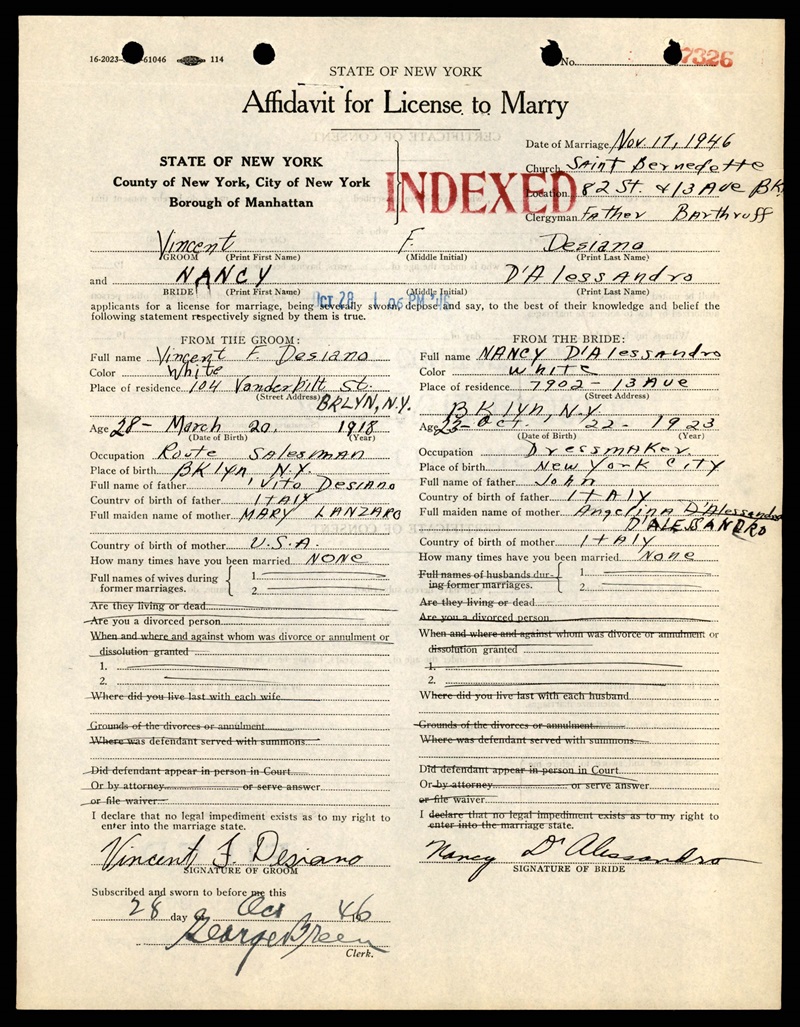 16-2023- -61046 114
No. 7326
STATE OF NEW YORK
Affidavit for License to Marry
STATE OF NEW YORK
County of New York, City of New York
Borough of Manhattan
INDEXED
Date of Marriage Nov. 17, 1946
Church Saint Bernedette
Location 82 St. & 13 Ave BK
Clergyman Father Barthruff
Vincent F. Desiano
GROOM (Print First Name) (Middle Initial) (Print Last Name)
and NANCY D'Alessandro
BRIDE (Print First Name) (Middle Initial) (Print Last Name)
OCT 28 1 06 PM '46
applicants for a license for marriage, being severally sworn, depose and say, to the best of their knowledge and belief the
following statement respectively signed by them is true.
FROM THE GROOM:
Full name Vincent F. Desiano
Color White
Place of residence 104 Vanderbilt St.
(Street Address)
BRLYN, N.Y.
Age 28 - March 20, 1918
(Date of Birth) (Year)
Occupation Route Salesman
Place of birth BKlyn N.Y.
Full name of father Vito Desiano
Country of birth of father ITALY
Full maiden name of mother MARY LANZARO
Country of birth of mother U.S.A.
How many times have you been married NONE
Full names of wives during
former marriages.
1.
2.
Are they living or dead
Are you a divorced person
When and where and against whom was divorce or annulment or
dissolution granted
1.
2.
Where did you live last with each wife
Grounds of the divorces or annulment
Where was defendant served with summons
Did defendant appear in person in Court
Or by attorney or serve answer
or file waiver
I declare that no legal impediment exists as to my right to
enter into the marriage state.
Vincent F. Desiano
SIGNATURE OF GROOM
Subscribed and sworn to before me this
28 day of Oct 46
George Breen
Clerk.
FROM THE BRIDE:
Full name NANCY D'Alessandro
Color White
Place of residence 7902 - 13 Ave
(Street Address)
BKlyn, N.Y.
Age 23 - Oct. 22 - 1923
(Date of Birth) (Year)
Occupation Dressmaker
Place of birth New York City
Full name of father John
Country of birth of father ITALY
Full maiden name of mother Angelina D'Alessandro
D'ALESSANDRO
Country of birth of mother ITALY
How many times have you been married None
Full names of husbands dur-
ing former marriages.
1.
2.
Are they living or dead
Are you a divorced person
When and where and against whom was divorce or annulment or
dissolution granted
1.
2.
Where did you live last with each husband
Grounds of the divorces or annulment
Where was defendant served with summons
Did defendant appear in person in Court
Or by attorney or serve answer
or file waiver
I declare that no legal impediment exists as to my right to
enter into the marriage state.
Nancy D'Alessandro
SIGNATURE OF BRIDE